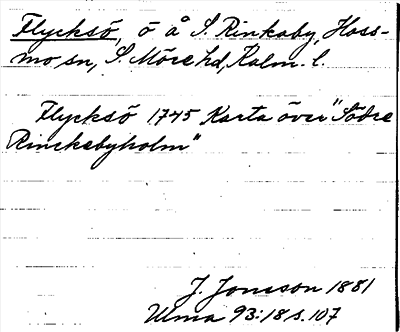 Flycksö, ö å S. Rinkaby, Hoss-
mo sn, S. Möre hd, Kalm. l.
Flycksö 1745 Karta över "Södre
Rinckabyholm"
J. Jonsson 1881
Ulma 93:18 s. 107